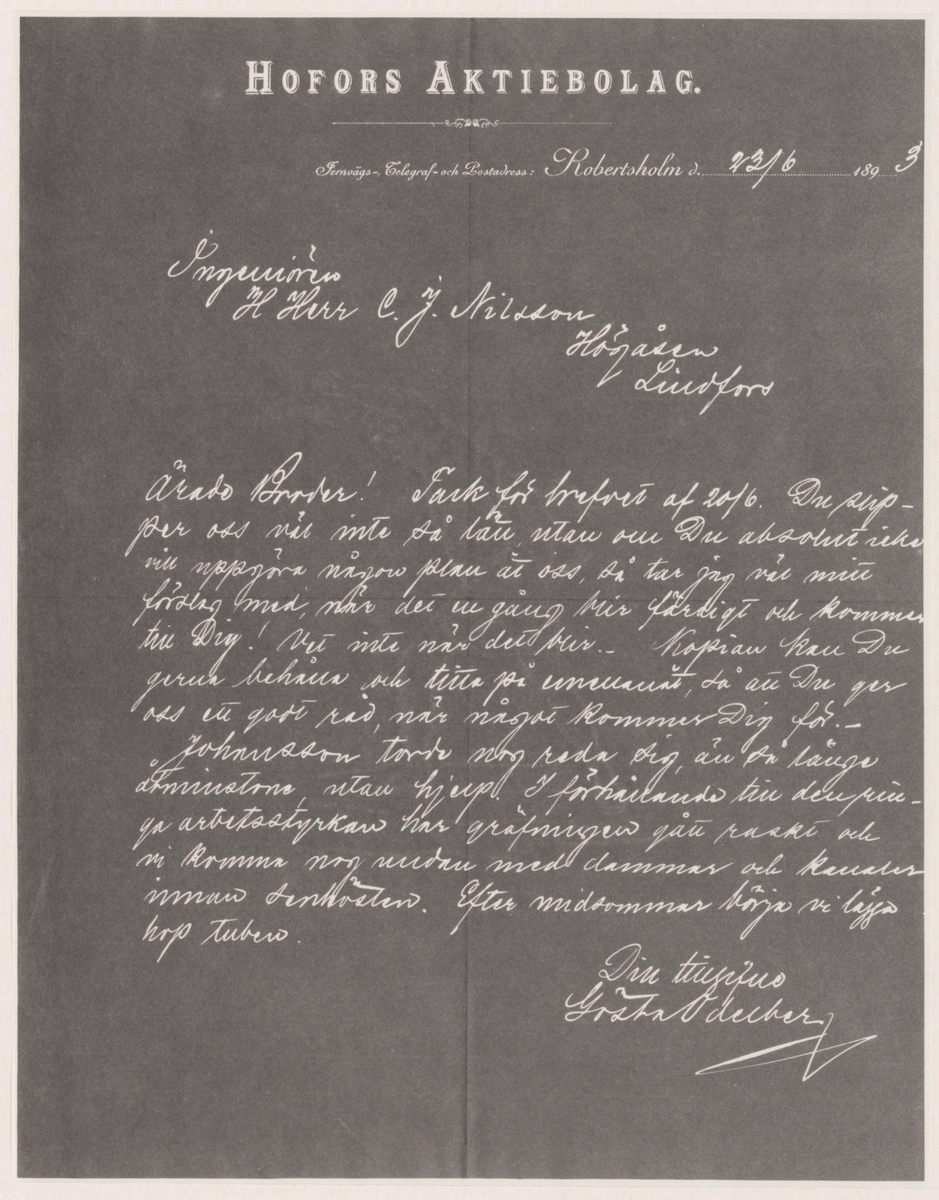 HOFORS AKTIEBOLAG.
Jernvägs-, Telegraf- och Postadress: Robertsholm d. 23/6 1893
Ingeniören
H Herr C. J. Nilsson
Högåsen
Lindfors
Ärade Broder! Tack för brefvet af 20/6. Du slip-
per oss väl inte så lätt, utan om Du absolut icke
vill uppgöra någon plan åt oss, så tar jag väl mitt
förslag med, när det en gång blir färdigt och kommer
till Dig! Vet inte när det blir. – Kopian kan Du
gerna behålla och titta på emellanåt, så att Du ger
oss ett godt råd, när något kommer Dig för. –
Johnsson torde nog reda sig, än så länge
åtminstone, utan hjelp. I förhållande till den rin-
ga arbetsstyrkan har gräfningen gått raskt och
vi komma nog undan med dammar och kanaler
innan senhösten. Efter midsommar börja vi lägga
hop tuben.
Din tillgifne
Gösta Odelberg